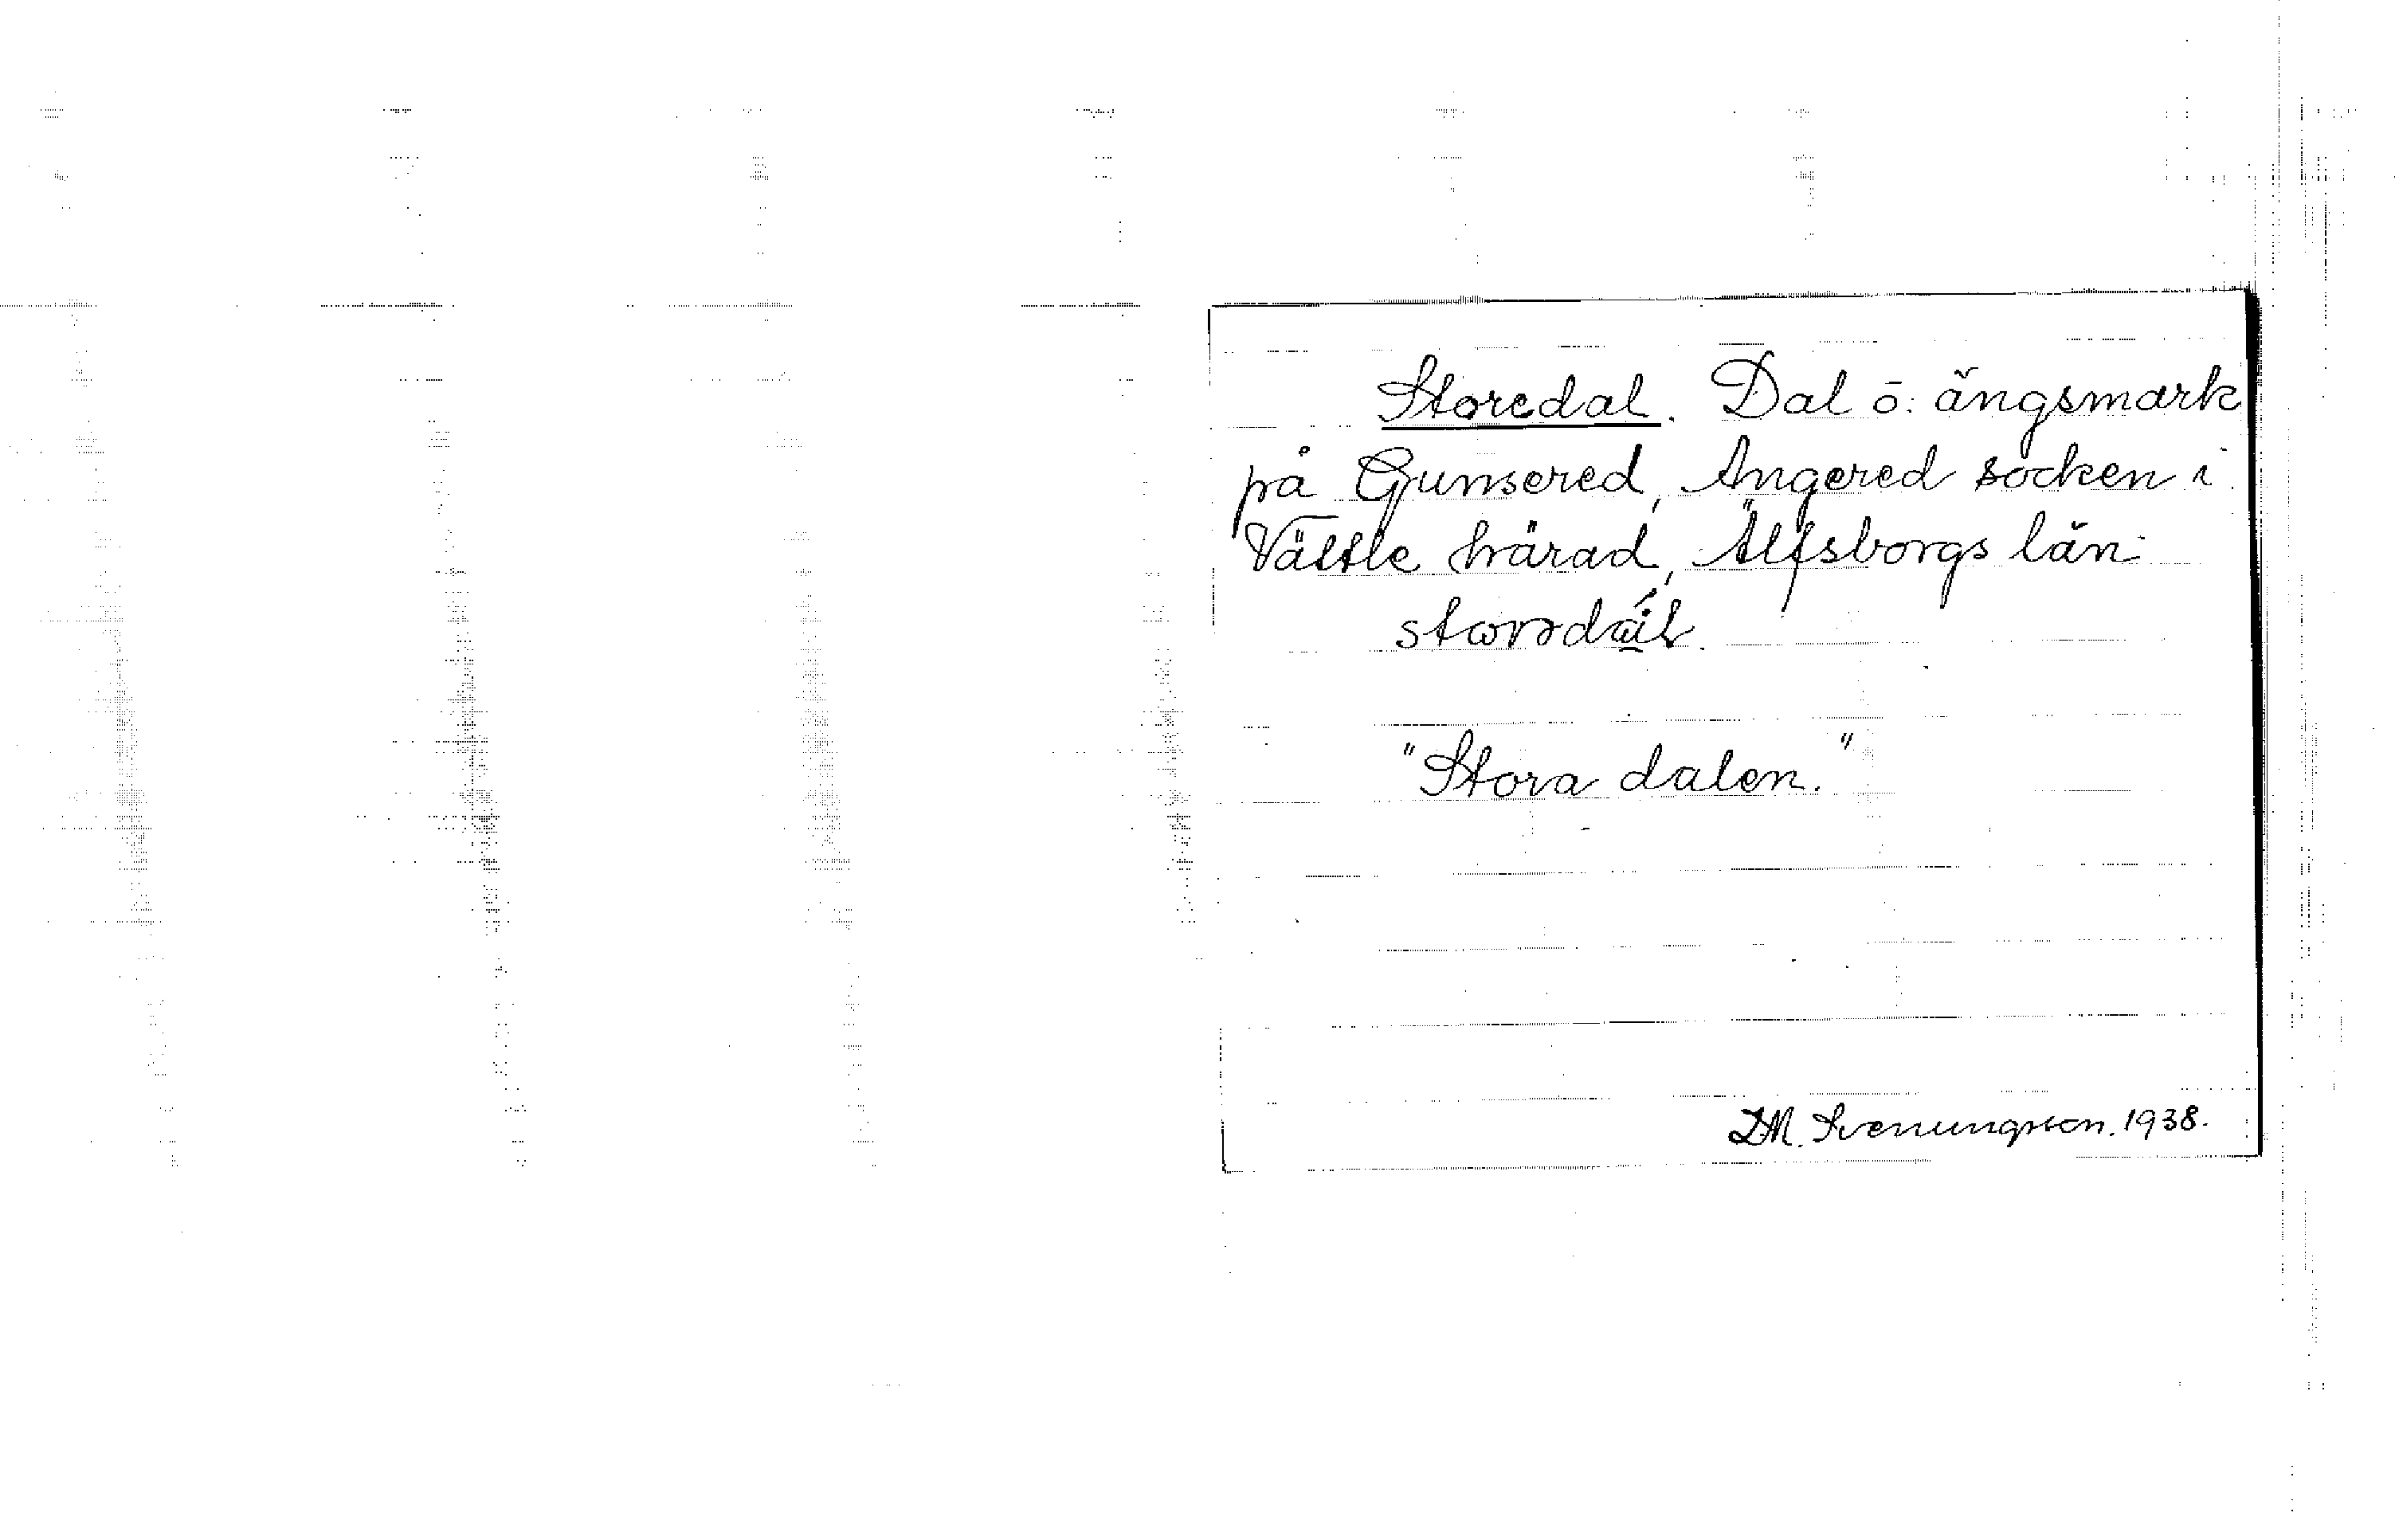 Storedal. Dal o. ängsmark
på Gunsered, Angered socken i
Vättle härad, Älfsborgs län
"Stora dalen."
D.M. Svenungsson. 1938.